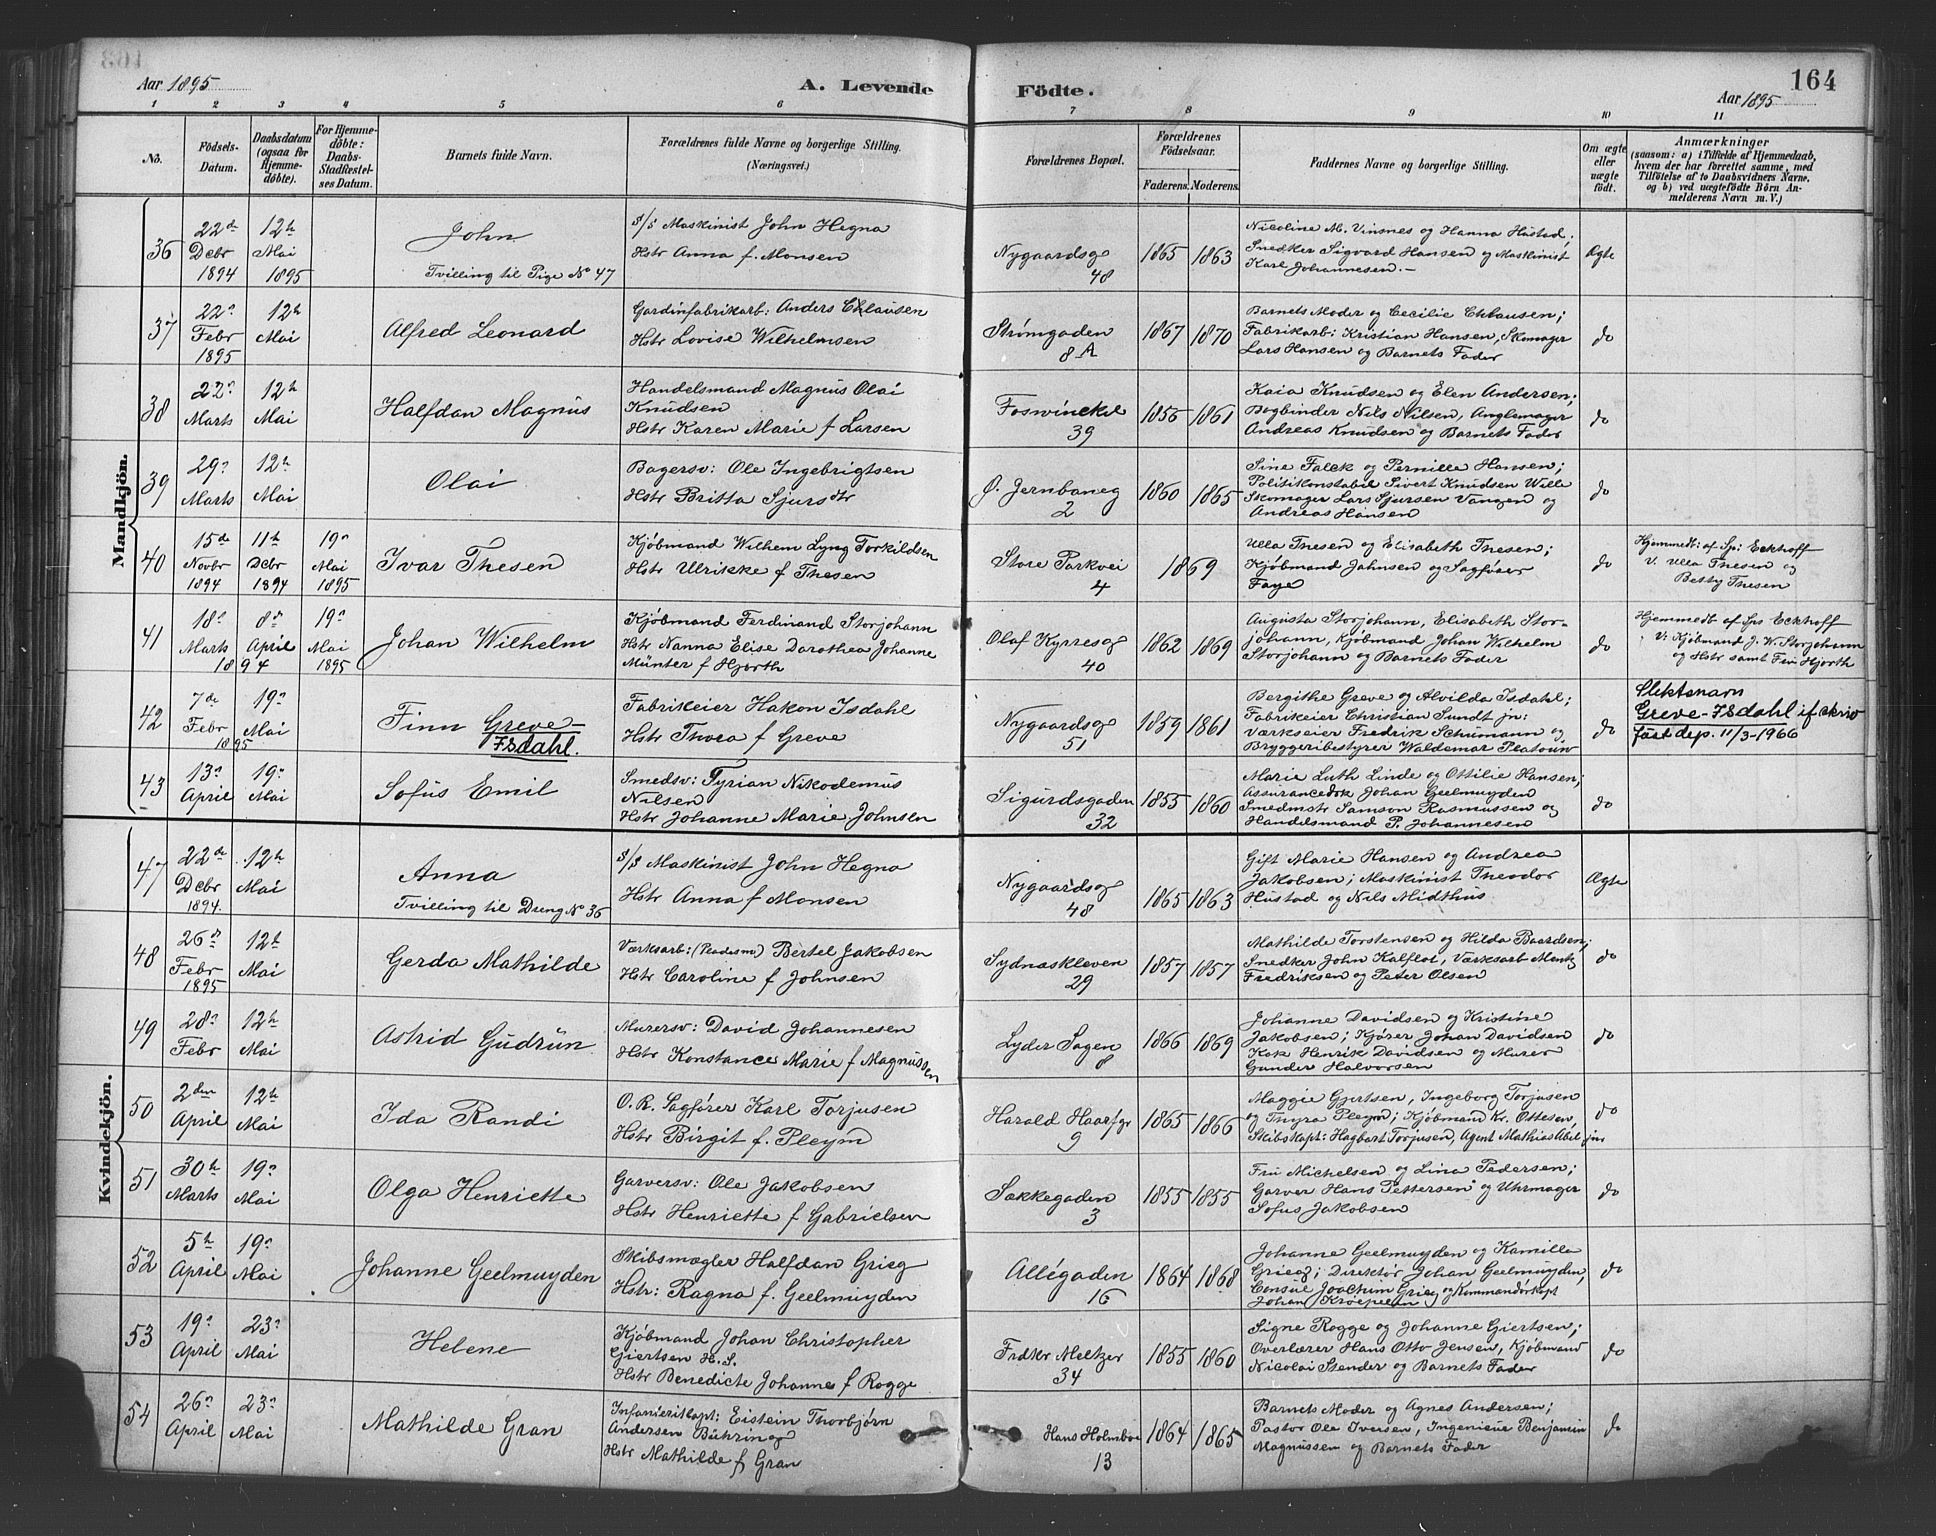 Aar 1895
A. Levende
Födte.
164
Aar 1895
1 2 3 4 5 6 7 8 9 10 11
No.
Födsels-
Datum.
Daabsdatum
(ogsaa for
Hjemme-
döbte).
For Hjemme-
döbte:
Daabs-
Stadfæstel-
ses Datum.
Barnets fulde Navn.
Forældrenes fulde Navne og borgerlige Stilling.
(Næringsvei.)
Forældrenes Bopæl.
Forældrenes
Födselsaar.
Faderens. Moderens.
Faddernes Navne og borgerlige Stilling.
Om ægte
eller
uægte
födt.
Anmærkninger
(saasom: a) i Tilfælde af Hjemmedaab,
hvem der har forrettet samme, med
Tilföielse af to Daabsvidners Navne,
og b) ved uægtefödte Börn An-
melderens Navn m. V.)
Mandkjön.
36
22de
Dcbr
1894
12te
Mai
1895
John
Tvilling til Pige No 47
S/S Maskinist John Hegna
Hstr Anna f. Monsen
Nygaardsg
48
1865 1863
Nicoline M. Vinsnes og Hanna Hustad;
Snedker Sigvard Hansen og Maskinist
Karl Johannesen.-
Ægte
37
22
Febr
1895
12te
Mai
Alfred Leonard
Gardinfabrikarb: Anders Chlausen
Hstr Lovise Wilhelmsen
Strømgaden
8 A
1867 1870
Barnets Moder og Cecilie Chlausen;
Fabrikarb: Kristian Hansen, Skomager
Lars Hansen og Barnets Fader
do
38
22
Marts
12te
Mai
Halfdan Magnus
Handelsmand Magnus Olai
Knudsen
Hstr Karen Marie f Larsen
Foswinckel
39
1855 1861
Kaia Knudsen og Elen Andersen;
Bogbinder Nils Nilsen, Anglemager
Andreas Knudsen og Barnets Fader
do
39
29
Marts
12te
Mai
Olai
Bagersv: Ole Ingebrigtsen
Hstr Britta Sjursdtr
Ø: Jernbaneg
2
1860 1865
Sine Falck og Pernille Hansen;
Politikonstabel Sivert Knudsen Wille
Skomager Lars Sjursen Vangen og
Andreas Hansen
do
40
15de
Novbr
1894
11te
Dcbr
1894
19
Mai
1895
Ivar Thesen
Kjøbmand Wilhem Lyng Torkildsen
Hstr Ulrikke f Thesen
Store Parkvei
4
1869
Ulla Thesen og Elisabeth Thesen;
Kjøbmand Jahnsen og Sagfører
Faye
do
Hjemmedt: af Sp: Eckhoff
V. Ulla Thesen og
Betsy Thesen
41
18
Marts
8de
April
1894
19
Mai
1895
Johan Wilhelm
Kjøbmand Ferdinand Storjohann
Hstr Nanna Elise Dorothea Johanne
Münter f Hjorth
Olaf Kyrresg
40
1862 1869
Augusta Storjohann, Elisabeth Stor-
johann, Kjøbmand Johan Wilhelm
Storjohann og Barnets Fader
do
Hjemmedt af Sps Eckhoff
V: Kjøbmand J. W. Storjohann
og Hstr samt Frü Hjorth
42
7de
Febr
1895
19
Mai
Finn Greve-
Isdahl.
Fabrikeier Hakon Isdahl
Hstr Thora f Greve
Nygaardsg
51
1859 1861
Bergithe Greve og Alvilda Isdahl;
Fabrikeier Christian Sundt jn:
Værkseier Fredrik Schumann og
Bryggeribestyrer Waldemar Platou
do
Slektsnavn
Greve-Isdahl if. skriv
just.dep. 11/3-1966
43
13
April
19
Mai
Sofus Emil
Smedsv: Tyrian Nikodemus
Nilsen
Hstr Johanne Marie Johnsen
Sigurdsgaden
32
1855 1860
Marie Luth Linde og Ottilie Hansen;
Assurancedrk Johan Geelmuyden
Smedmstr Samson Rasmussen og
Handelsmand P. Johannesen
do
Kvindekjön.
47
22de
Dcbr
1894.
12te
Mai
Anna
Tvilling til Dreng No 36
S/S Maskinist John Hegna
Hstr Anna f Monsen
Nygaardsg
48
1865 1863
Gift Marie Hansen og Andrea
Jakobsen; Maskinist Theodor
Hustad og Nils Midthus
Ægte
48
26
Febr
1895
12te
Mai
Gerda Mathilde
Værksarb: (Pladesm) Bertel Jakobsen
Hstr Caroline f Johnsen
Sydnæskleven
29
1857 1857
Mathilde Torstensen og Hilda Baardsen;
Snedker John Kalfloi, Værksarb Mentz
Fredriksen og Peter Olsen
do
49
28
Febr
12te
Mai
Astrid Gudrün
Murersv: David Johannesen
Hstr Konstance Marie f Magnussen
Lyder Sagen
8
1866 1869
Johanne Davidsen og Kristine
Jakobsen; Kjører Johan Davidsen
Kok Henrik Davidsen og Murer
Gunder Halvorsen
do
50
2den
April
12te
Mai
Ida Randi
O. R. Sagfører Karl Torjusen
Hstr Birgit f. Pleym
Harald Haarfgr
9
1865 1866
Maggie Gjertsen, Ingeborg Torjusen
og Thyra Pleym; Kjøbmand Kr. Ottesen,
Skibskapt: Hagbart Torjusen, Agent Mathias Abel jun
do
51
30te
Marts
19
Mai
Olga Henriette
Garversv: Ole Jakobsen
Hstr Henriette f Gabrielsen
Sækkegaden
3
1855 1855
Fru Michelsen og Lina Pedersen;
Garver Hans Pettersen og Uhrmager
Sofus Jakobsen
do
52
5te
April
19
Mai
Johanne Geelmuyden
Skibsmægler Halfdan Grieg
Hstr: Ragna f. Geelmuyden
Allégaden
16
1864 1868
Johanne Geelmuyden og Kamilla
Grieg; Direktør Johan Geelmuyden,
Consul Joachum Grieg og Kommandørkapt
Johan Kroepelin
do
53
19
April
23
Mai
Helene
Kjøbmand Johan Christopher
Giertsen H. S.
Hstr Benedicte Johannes f Rogge
Frdkr Meltzer
34
1855 1860
Signe Rogge og Johanne Giertsen;
Overlærer Hans Otto Jensen, Kjøbmand
Nicolai Stender og Barnets Fader
do
54
26
April
23
Mai
Mathilde Gran
Infanterikapt: Eistein Thorbjørn
Andersen Bühring
Hstr Mathilde f Gran
Hans Holmboe
13
1864 1865
Barnets Moder og Agnes Andersen;
Pastor Ole Iversen, Ingenieur Benjamin
Magnussen og Barnets Fader
do